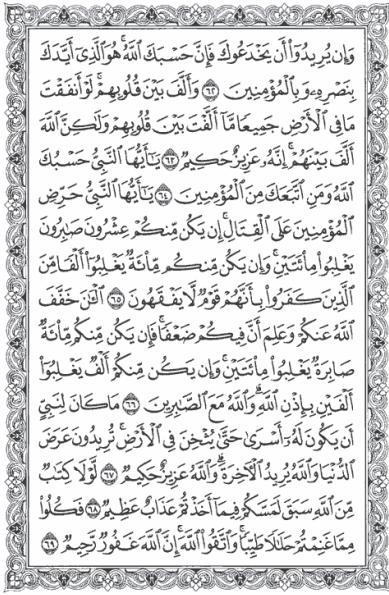 وَإِن يُرِيدُوٓا۟ أَن يَخْدَعُوكَ فَإِنَّ حَسْبَكَ ٱللَّهُ ۚ هُوَ ٱلَّذِىٓ أَيَّدَكَ
بِنَصْرِهِۦ وَبِٱلْمُؤْمِنِينَ ٦٢ وَأَلَّفَ بَيْنَ قُلُوبِهِمْ ۚ لَوْ أَنفَقْتَ
مَا فِى ٱلْأَرْضِ جَمِيعًا مَّآ أَلَّفْتَ بَيْنَ قُلُوبِهِمْ وَلَٰكِنَّ ٱللَّهَ
أَلَّفَ بَيْنَهُمْ ۚ إِنَّهُۥ عَزِيزٌ حَكِيمٌ ٦٣ يَٰٓأَيُّهَا ٱلنَّبِىُّ حَسْبُكَ
ٱللَّهُ وَمَنِ ٱتَّبَعَكَ مِنَ ٱلْمُؤْمِنِينَ ٦٤ يَٰٓأَيُّهَا ٱلنَّبِىُّ حَرِّضِ
ٱلْمُؤْمِنِينَ عَلَى ٱلْقِتَالِ ۚ إِن يَكُن مِّنكُمْ عِشْرُونَ صَٰبِرُونَ
يَغْلِبُوا۟ مِا۟ئَتَيْنِ ۚ وَإِن يَكُن مِّنكُم مِّا۟ئَةٌ يَغْلِبُوٓا۟ أَلْفًا مِّنَ
ٱلَّذِينَ كَفَرُوا۟ بِأَنَّهُمْ قَوْمٌ لَّا يَفْقَهُونَ ٦٥ ٱلْـَٰٔنَ خَفَّفَ
ٱللَّهُ عَنكُمْ وَعَلِمَ أَنَّ فِيكُمْ ضَعْفًا ۚ فَإِن يَكُن مِّنكُم مِّا۟ئَةٌ
صَابِرَةٌ يَغْلِبُوا۟ مِا۟ئَتَيْنِ ۚ وَإِن يَكُن مِّنكُمْ أَلْفٌ يَغْلِبُوٓا۟
أَلْفَيْنِ بِإِذْنِ ٱللَّهِ ۗ وَٱللَّهُ مَعَ ٱلصَّٰبِرِينَ ٦٦ مَا كَانَ لِنَبِىٍّ
أَن يَكُونَ لَهُۥٓ أَسْرَىٰ حَتَّىٰ يُثْخِنَ فِى ٱلْأَرْضِ ۚ تُرِيدُونَ عَرَضَ
ٱلدُّنْيَا وَٱللَّهُ يُرِيدُ ٱلْءَاخِرَةَ ۗ وَٱللَّهُ عَزِيزٌ حَكِيمٌ ٦٧ لَّوْلَا كِتَٰبٌ
مِّنَ ٱللَّهِ سَبَقَ لَمَسَّكُمْ فِيمَآ أَخَذْتُمْ عَذَابٌ عَظِيمٌ ٦٨ فَكُلُوا۟
مِمَّا غَنِمْتُمْ حَلَٰلًا طَيِّبًا ۚ وَٱتَّقُوا۟ ٱللَّهَ ۚ إِنَّ ٱللَّهَ غَفُورٌ رَّحِيمٌ ٦٩